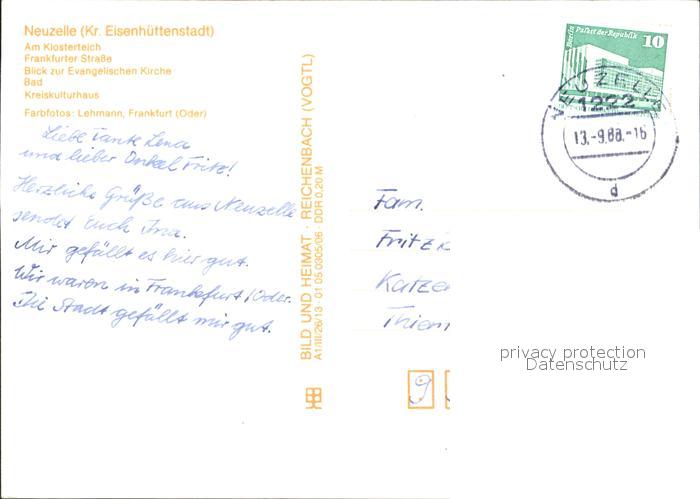 Neuzelle (Kr. Eisenhüttenstadt)
Am Klosterteich
Frankfurter Straße
Blick zur Evangelischen Kirche
Bad
Kreiskulturhaus
Farbfotos: Lehmann, Frankfurt (Oder)
Liebe Tante Lena
und lieber Onkel Fritz!
Herzliche Grüße aus Neuzelle
sendet Euch Ina.
Mir gefällt es hier gut.
Wir waren in Frankfurt/Oder.
Die Stadt gefällt mir gut.
BILD UND HEIMAT · REICHENBACH (VOGTL)
A1/III/26/13 · 01 05 0305/06 · DDR 0,20 M
Berlin Palast der Republik 10
NEUZELLE
1222
13.-9.88.-16
d
Fam.
Fritz
Katze
Thiem
9
privacy protection
Datenschutz